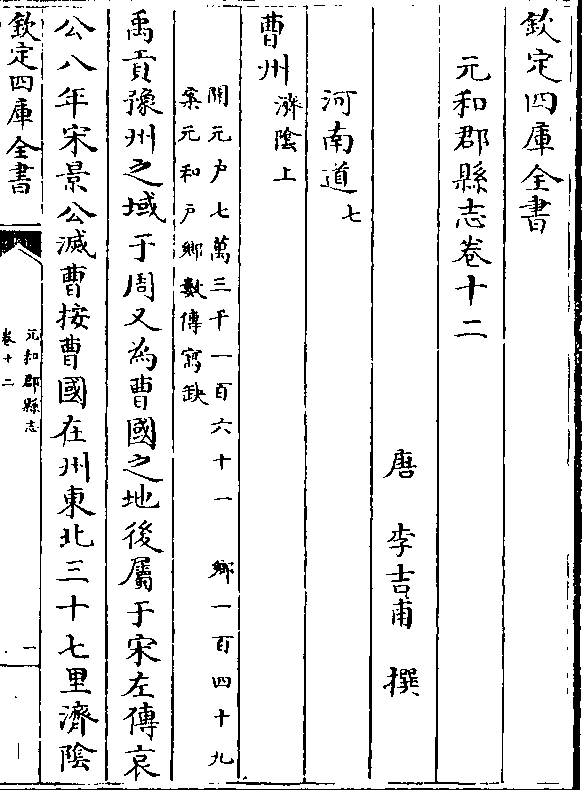 欽定四庫全書
元和郡縣志卷十二
唐 李吉甫 撰
河南道七
曹州濟陰上
開元户七萬三千一百六十一 鄉一百四十九
案元和戶鄉數傳寫缺
禹貢豫州之域于周又為曹國之地後屬于宋左傳哀
公八年宋景公滅曹按曹國在州東北三十七里濟陰
欽定四庫全書
元和郡縣志
卷十二
一